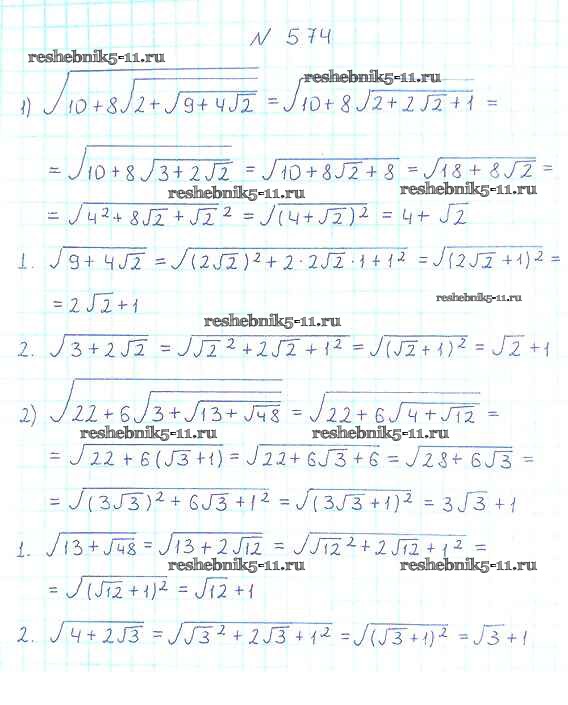 N 574
reshebnik5-11.ru
reshebnik5-11.ru
1) √(10+8√(2+√(9+4√2))) = √(10+8√(2+2√2+1)) =
= √(10+8√(3+2√2)) = √(10+8√2+8) = √(18+8√2) =
reshebnik5-11.ru
reshebnik5-11.ru
= √(4²+8√2+√2²) = √((4+√2)²) = 4+√2
1. √(9+4√2) = √((2√2)²+2·2√2·1+1²) = √((2√2+1)²) =
= 2√2+1
reshebnik5-11.ru
reshebnik5-11.ru
2. √(3+2√2) = √(√2²+2√2+1²) = √((√2+1)²) = √2+1
2) √(22+6√(3+√(13+√48))) = √(22+6√(4+√12)) =
reshebnik5-11.ru
reshebnik5-11.ru
= √(22+6(√3+1)) = √(22+6√3+6) = √(28+6√3) =
= √((3√3)²+6√3+1²) = √((3√3+1)²) = 3√3+1
1. √(13+√48) = √(13+2√12) = √(√12²+2√12+1²) =
reshebnik5-11.ru
reshebnik5-11.ru
= √((√12+1)²) = √12+1
2. √(4+2√3) = √(√3²+2√3+1²) = √((√3+1)²) = √3+1